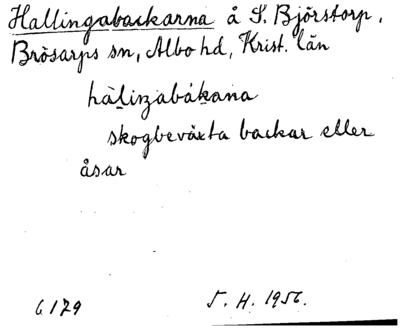 Hallingabackarna å S. Björstorp,
Brösarps sn, Albo hd, Krist. län
hàliŋabákana
skogbeväxta backar eller
åsar
6179 S. H. 1956.